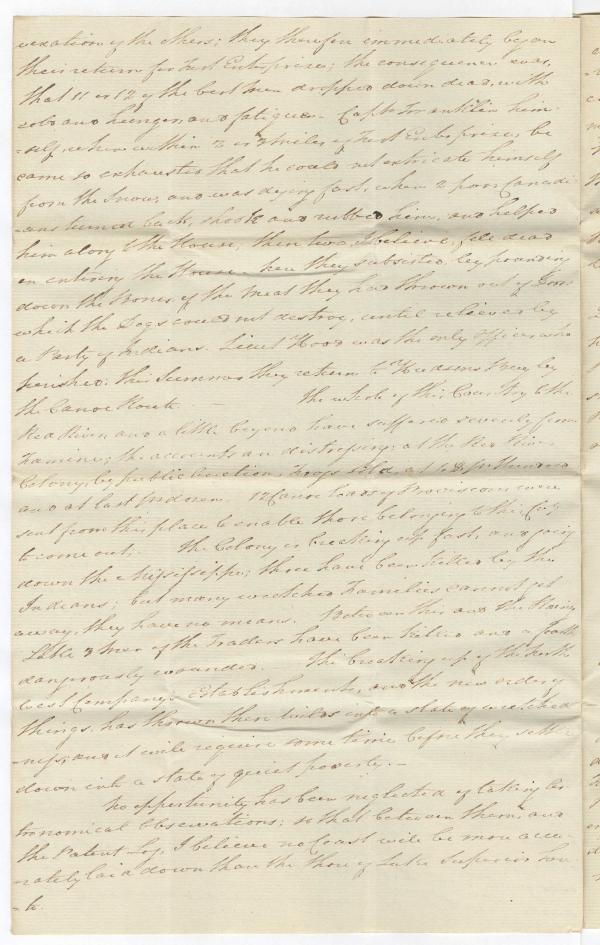 vexation of the others; they therefore immediately began
their return for Fort Enterprise; the consequence was,
that 11 or 12 of the best men dropped down dead, with
cold and hunger, and fatigue. Captn Franklin him-
-self, when within 2 or 3 miles of Fort Enterprise, be
came so exhausted that he could not extricate himself
from the Snow, and was dying fast, when 2 poor Canadi
-ans turned back, shook and rubbed him, and helped
him along to the House, then two, I believe, fell dead
on entering the House. here they subsisted, by pounding
down the Bones of the Meat they had thrown out of Doors
which the Dogs could not destroy, until relieved by
a Party of Indians. Lieut Hood was the only Officer who
perished. this Summer they return to Hudsons Bay by
the Canoe Route. The whole of this Country to the
Red River and a little beyond have suffered severely from
Famine; the accounts are distressing: at the Red River
Colony, by public Auction, Dogs sold at
and at last 12 Canoe loads of Provisions were
sent from this place to enable those belonging to this
to come out; the Colony is breaking up fast, and going
down the Missisippe; three have been killed by the
Indians; but many wretched Families cannot get
away, they have no means. Between this and the Rainy
Lake 3 Men of the Traders have been killed and a fourth
dangerously wounded. The breaking up of the North
West Company's Establishments, and the new order of
things, has thrown these wilds into a state of wretched
-ness, and it will require some time before they settle
down into a state of quiet poverty. —
No opportunity has been neglected of taking As
tronomical Observations; so that between them, and
the Patent Log, I believe no Coast will be more accu-
-rately laid down than the Shore of Lake Superior